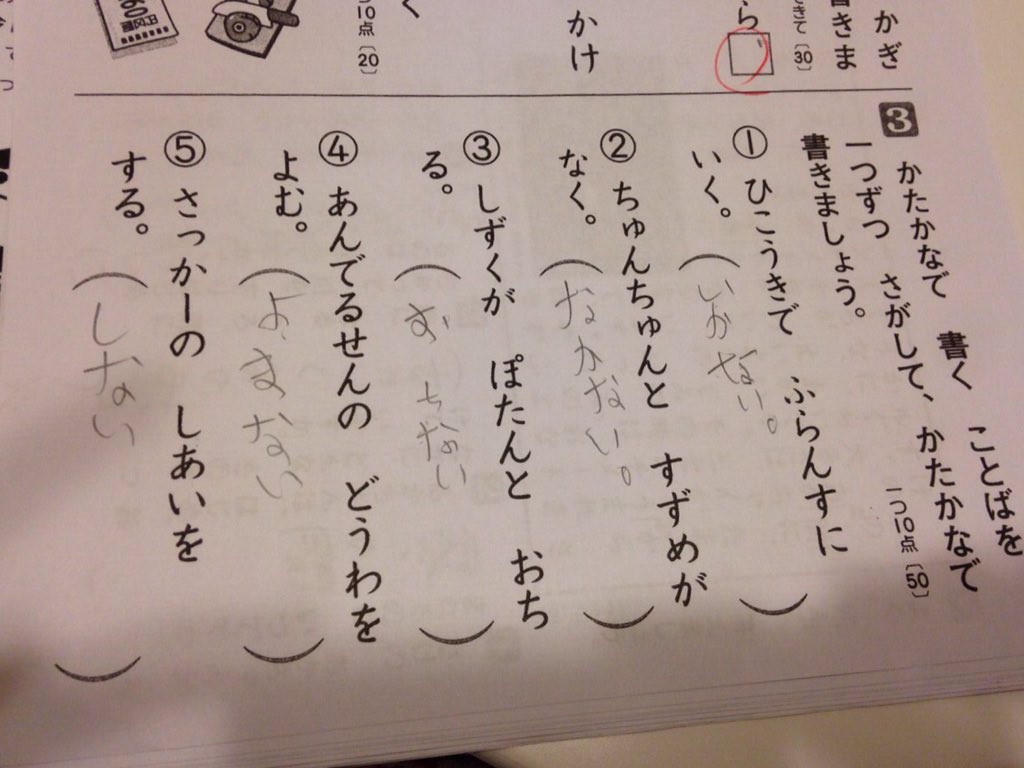 かぎ
書きま
きて〔30〕
ら
かけ
つ10点〔20〕
く
3 かたかなで 書く ことばを
一つずつ さがして、かたかなで
書きましょう。
一つ10点〔50〕
① ひこうきで ふらんすに
いく。
(いかない。)
② ちゅんちゅんと すずめが
なく。
(なかない。)
③ しずくが ぽたんと おち
る。
(おちない)
④ あんでるせんの どうわを
よむ。
(よまない)
⑤ さっかーの しあいを
する。
(しない)